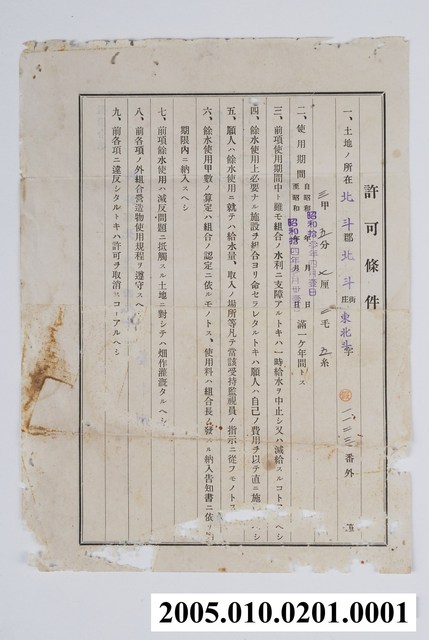 許可條件
一、土地ノ所在 北斗郡 北斗街庄 東北斗字 一二三番外
三甲 五分 七厘 三毛 五糸
二、使用期間 自昭和 年 月 日 至昭和 年 月 日 滿一ケ年間トス
三、前項使用期間中ト雖モ組合ノ水利ニ支障アルトキハ一時給水ヲ中止シ又ハ減給スルコトヘシ
四、餘水使用上必要ナル施設ヲ組合ヨリ命セラレタルトキハ願人ハ自己ノ費用ヲ以テ直ニ施シ
五、願人ハ餘水使用ニ就テハ給水量、取入ノ場所等凡テ當該受持監視員ノ指示ニ從フモノトス
六、餘水使用甲數ノ算定ハ組合ノ認定ニ依ルモノトス、使用料ハ組合長ノ發スル納入告知書ニ依リ
期限內ニ納入スヘシ
七、前項餘水使用ハ減反問題ニ抵觸スル土地ニ對シテハ畑作灌漑タルヘシ
八、前各項ノ外組合營造物使用規程ヲ遵守スヘシ
九、前各項ニ違反シタルトキハ許可ヲ取消スコアルヘシ
2005.010.0201.0001